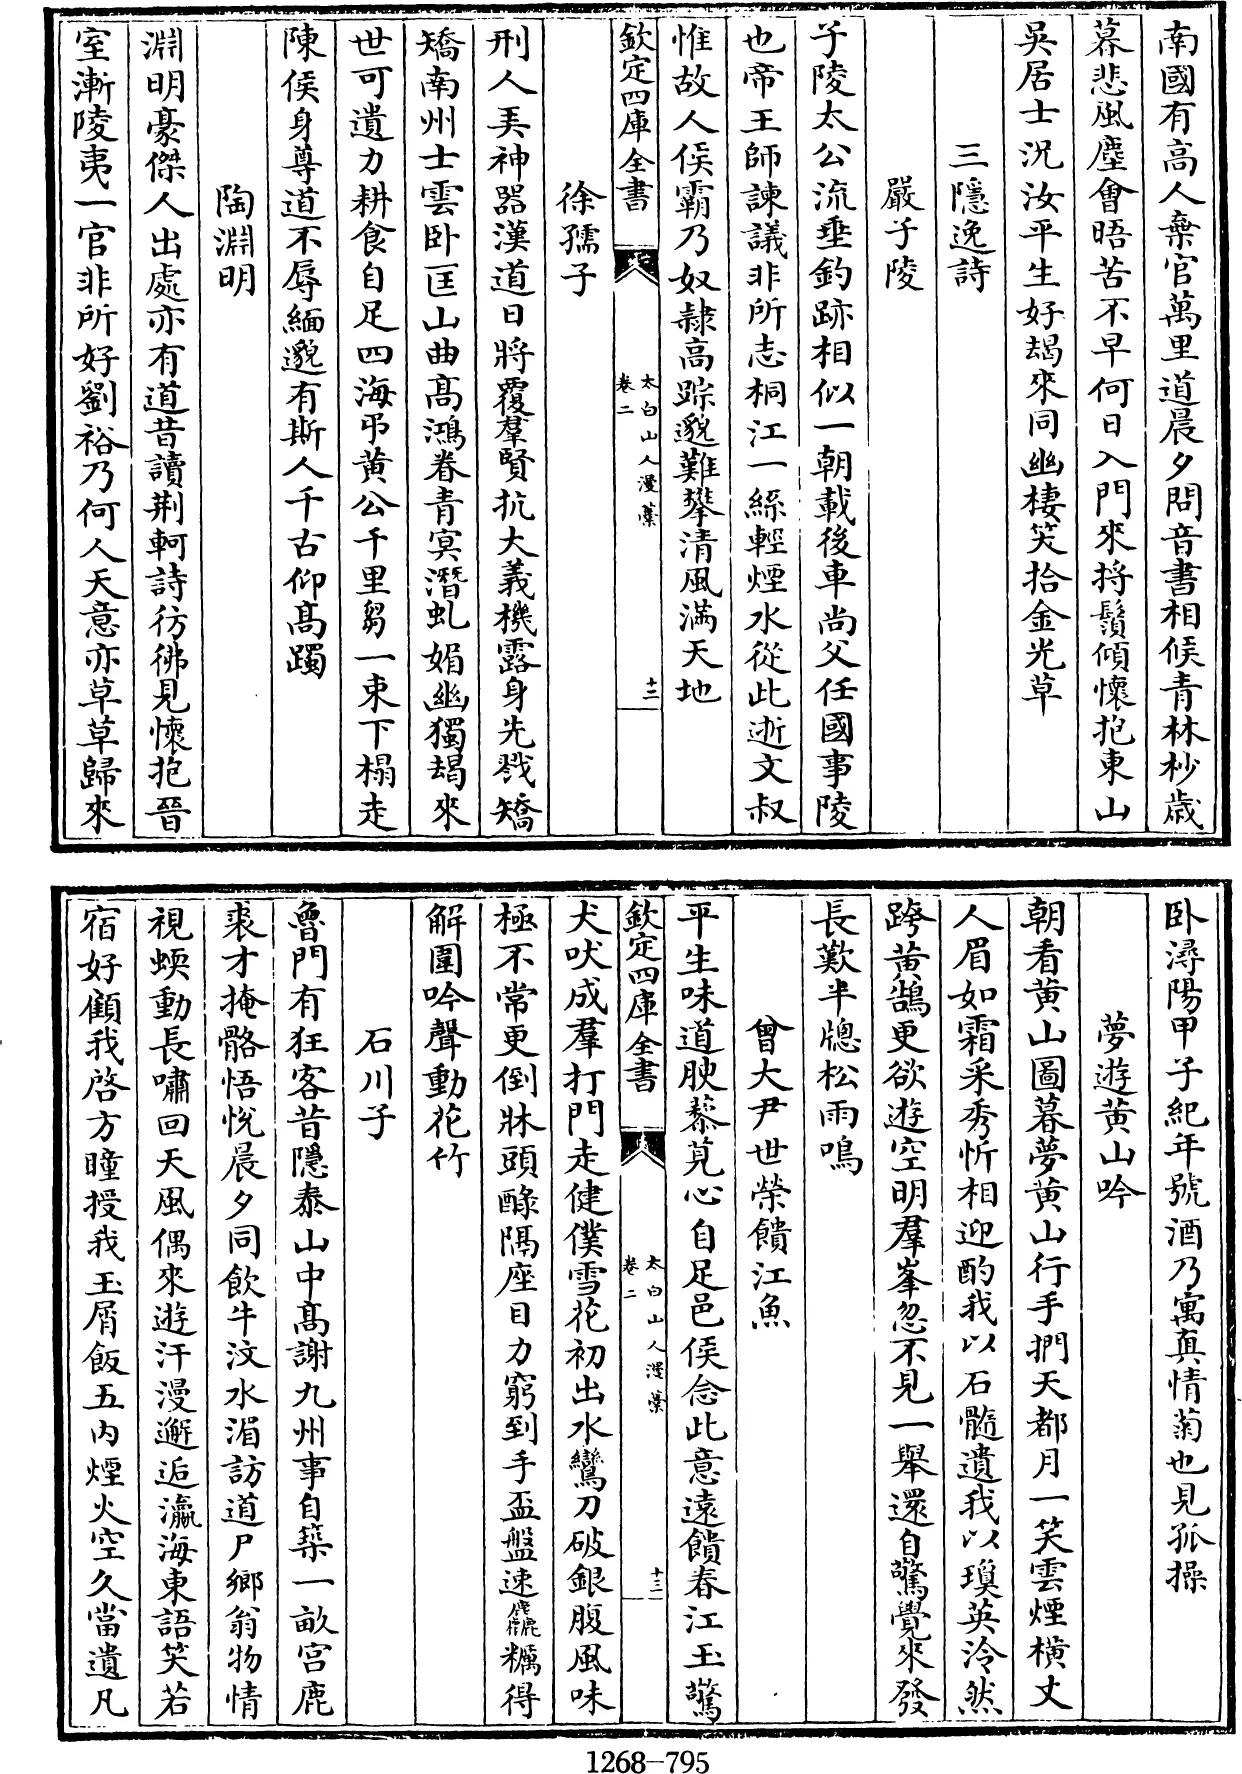 南國有高人棄官萬里道晨夕問音書相候青林杪歲
暮悲風塵會晤苦不早何日入門來捋鬚傾懷抱東山
吳居士況汝平生好朅來同幽棲笑拾金光草
三隱逸詩
嚴子陵
子陵太公流垂釣跡相似一朝載後車尚父任國事陵
也帝王師諫議非所志桐江一絲輕煙水從此逝文叔
惟故人侯霸乃奴隸高踪邈難攀清風滿天地
欽定四庫全書
太白山人漫藁
卷二
十二
徐孺子
刑人弄神器漢道日將覆羣賢抗大義機露身先戮矯
矯南州士雲卧匡山曲髙鴻眷青冥潛虬媚幽獨朅來
世可遺力耕食自足四海弔黄公千里芻一束下榻走
陳侯身尊道不辱緬邈有斯人千古仰髙躅
陶淵明
淵明豪傑人出處亦有道昔讀荆軻詩彷彿見懷抱晉
室漸陵夷一官非所好劉裕乃何人天意亦草草歸來
卧潯陽甲子紀年號酒乃寓真情菊也見孤操
夢遊黄山吟
朝看黄山圖暮夢黄山行手捫天都月一笑雲煙横丈
人眉如霜采秀忻相迎酌我以石髓遺我以瓊英泠然
跨黄鵠更欲遊空明羣峯忽不見一舉還自驚覺來發
長歎半牕松雨鳴
曾大尹世榮饋江魚
平生味道腴藜莧心自足邑侯念此意遠饋春江玉驚
欽定四庫全書
太白山人漫藁
卷二
十三
犬吠成羣打門走健僕雪花初出水鸞刀破銀腹風味
極不常更倒牀頭醁隔座目力窮到手盃盤速麤糲得
解圍吟聲動花竹
石川子
魯門有狂客昔隱泰山中髙謝九州事自築一畝宫鹿
裘才掩骼悟悦晨夕同飲牛汶水湄訪道尸鄉翁物情
視蝡動長嘯回天風偶來遊汗漫邂逅瀛海東語笑若
宿好顧我啓方瞳授我玉屑飯五内煙火空久當遺凡
1268-795